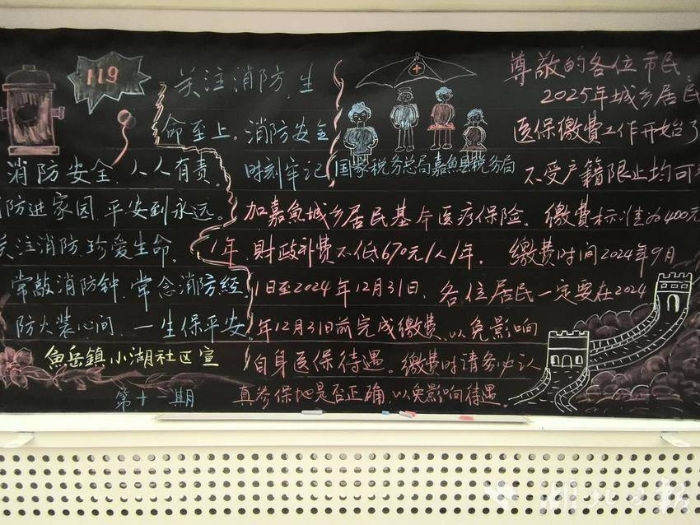 119
关注消防,生
命至上,消防安全
时刻牢记
消防安全,人人有责。
防进家园,平安到永远。
关注消防,珍爱生命,
常敲消防钟,常念消防经
防火装心间,一生保平安
魚岳鎮小湖社区宣
第十二期
尊敬的各位市民,
2025年城乡居民
医保缴费工作开始了
国家税务总局嘉魚县税务局
不受户籍限止均可
加嘉魚城乡居民基本医疗保险,缴费标准为400元
1年,财政补费不低670元/人/年。缴费时间2024年9月
1日至2024年12月31日,各位居民一定要在2024
年12月31日前完成缴费,以免影响
自身医保待遇。缴费时请务必认
真参保地是否正确,以免影响待遇。